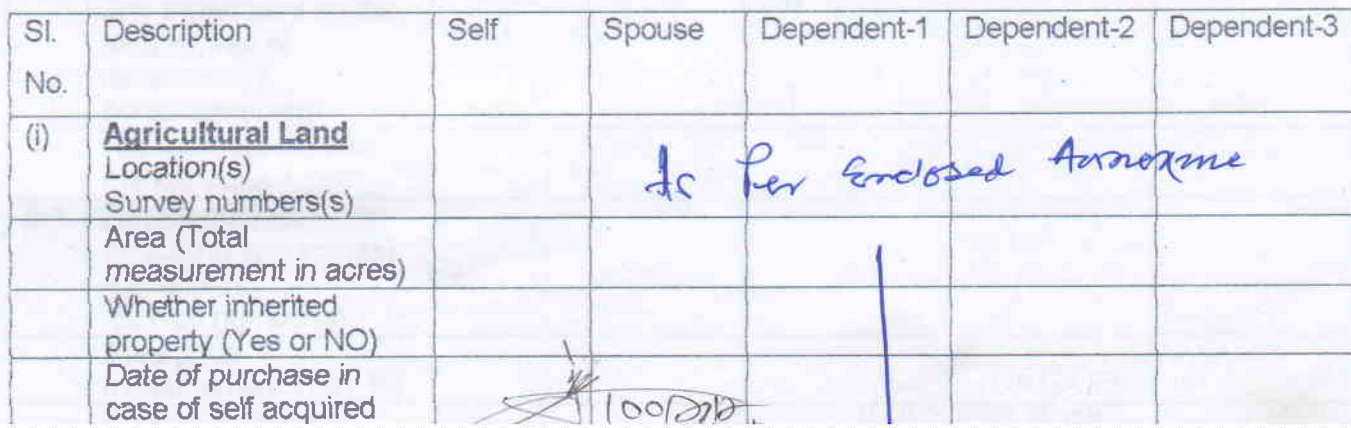 Sl. No. Description Self Spouse Dependent-1 Dependent-2 Dependent-3
(i) Agricultural Land
Location(s)
Survey numbers(s)
As Per Enclosed Annexure
Area (Total
measurement in acres)
Whether inherited
property (Yes or NO)
Date of purchase in
case of self acquired